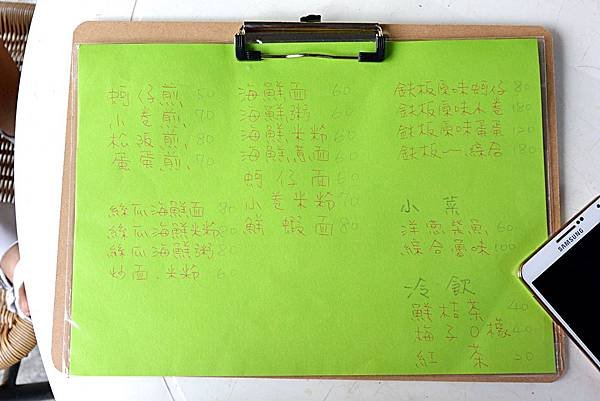 蚵仔煎 50
小卷煎 70
松阪煎 80
蛋蛋煎 70
絲瓜海鮮面 80
絲瓜海鮮米粉 80
絲瓜海鮮粥 8
炒面.米粉 60
海鮮面 60
海鮮粥 60
海鮮米粉 60
海鮮意面 60
蚵仔面 60
小卷米粉 70
鮮蝦面 80
鉄板原味蚵仔 80
鉄板原味小卷 180
鉄板原味蛋蛋 120
鉄板一綜合 180
小菜
洋蔥柴魚 60
綜合魯味 100
冷飲
鮮桔茶 40
梅子O橡 40
紅茶 20
SAMSUNG